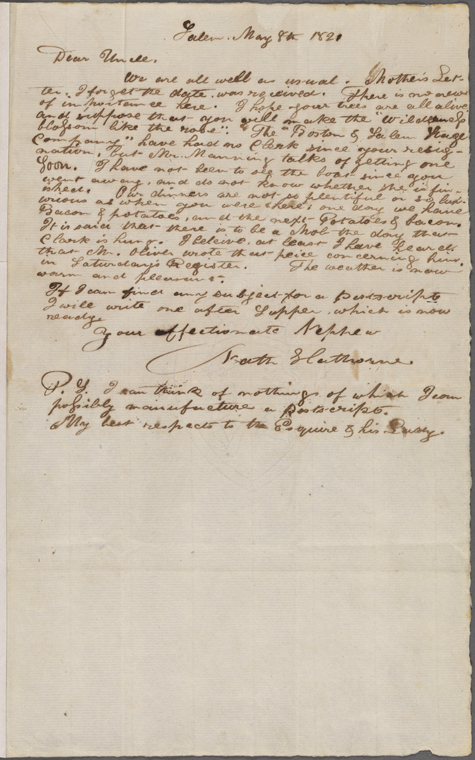 Salem. May 8th 1820
Dear Uncle.
We are all well as usual. Mothers Let-
ter, I forget the date, was received. There is no news
of importance here. I hope your trees are all alive
and suppose that you will make the "Wilderness
blossom like the rose". "The "Boston & Salem Stage
Company" have had no Clerk since your resig-
nation, but Mr. Manning talks of getting one
soon. I have not been to see the boat since you
went away, and do not know whether she is fin-
ished. Our dinners are not so plentiful or so lux-
urious as when you were here; one day we have
Bacon & potatoes, and the next Potatoes & bacon.
It is said that there is to be a Mob the day that
Clark is hung. I beleive, at least I have heard
that Mr. Oliver wrote that peice concerning him,
in Saturday's Register. The weather is now
warm and pleasant.
If I can find any subject for a postscript
I will write one after Supper, which is now
ready.
Your affectionate Nephew
Nath Hathorne.
P. S. I can think of nothings of which I can
possibly manufacture a postscript.
My best respects to the Esquire & his Lady.